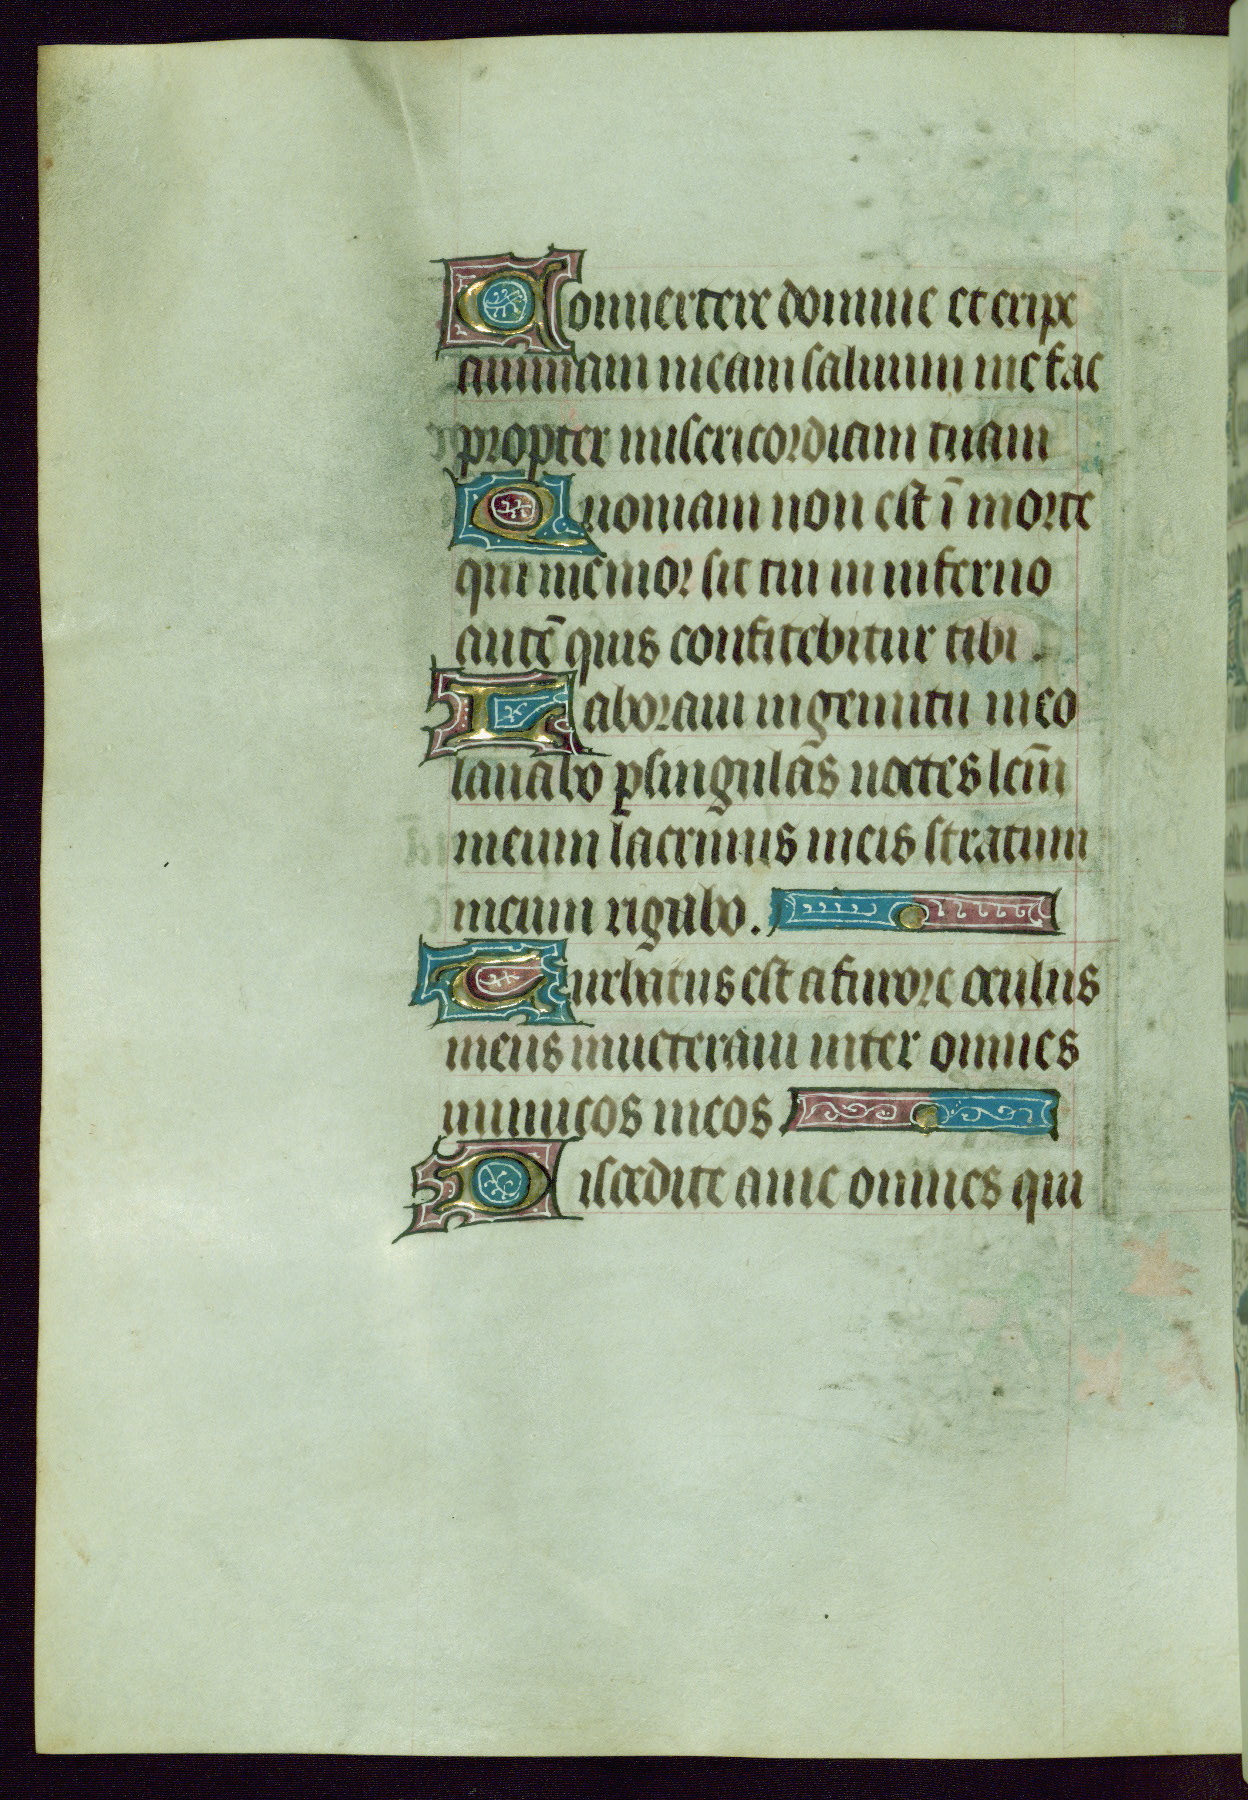 Conuertere domine et eripe
animam meam saluum me fac
propter misericordiam tuam
Quoniam non est ī morte
qui memor sit tui in inferno
autē quis confitebitur tibi .
Laboraui in gemitu meo
lauabo p singulās noctes lcm̄
meum lacrimis meis stratum
meum rigabo .
Turbatus est a furore oculus
meus inueteraui inter omnes
inimicos meos
Discedite a me omnes qui